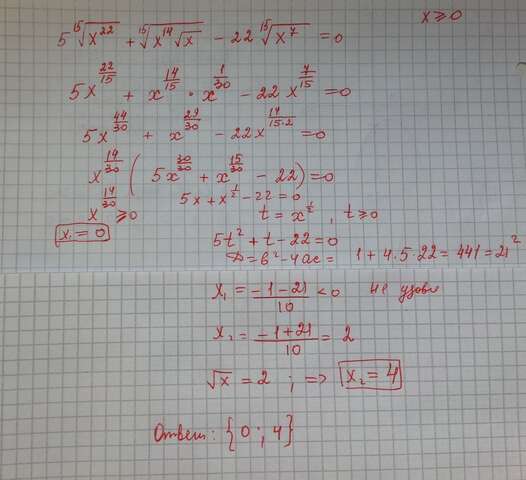 x ⩾ 0
5 ¹⁵√(x²²) + ¹⁵√(x¹⁴√x) − 22 ¹⁵√(x⁷) = 0
5x^(22/15) + x^(14/15) · x^(1/30) − 22x^(7/15) = 0
5x^(44/30) + x^(29/30) − 22x^(14/(15·2)) = 0
x^(14/30) (5x^(30/30) + x^(15/30) − 22) = 0
x^(14/30) ⩾ 0 5x + x^(1/2) − 22 = 0
x₁ = 0 t = x^(1/2), t ⩾ 0
5t² + t − 22 = 0
D = b² − 4ac = 1 + 4·5·22 = 441 = 21²
x₁ = (−1−21)/10 < 0 не удовл
x₂ = (−1+21)/10 = 2
√x = 2 ; => x₂ = 4
Ответ: {0; 4}